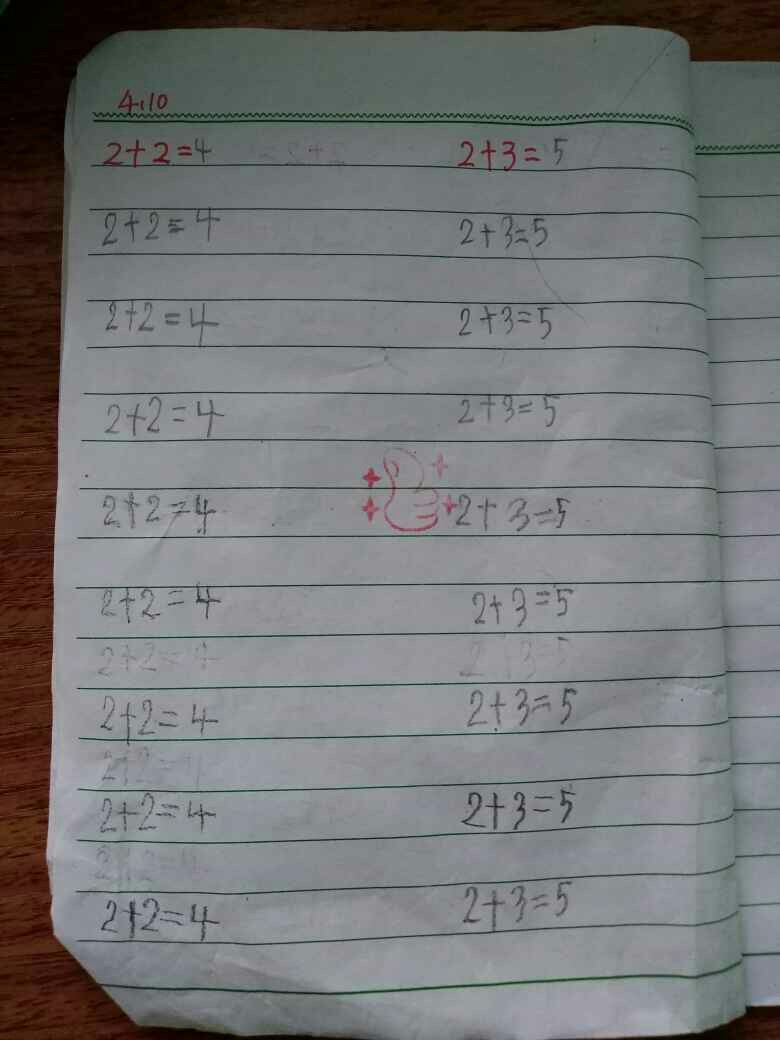 4.10
2+2=4 2+3=5
2+2=4 2+3=5
2+2=4 2+3=5
2+2=4 2+3=5
2+2=4 2+3=5
2+2=4 2+3=5
2+2=4 2+3=5
2+2=4 2+3=5
2+2=4
2+2=4 2+3=5
2+2=4
2+2=4 2+3=5